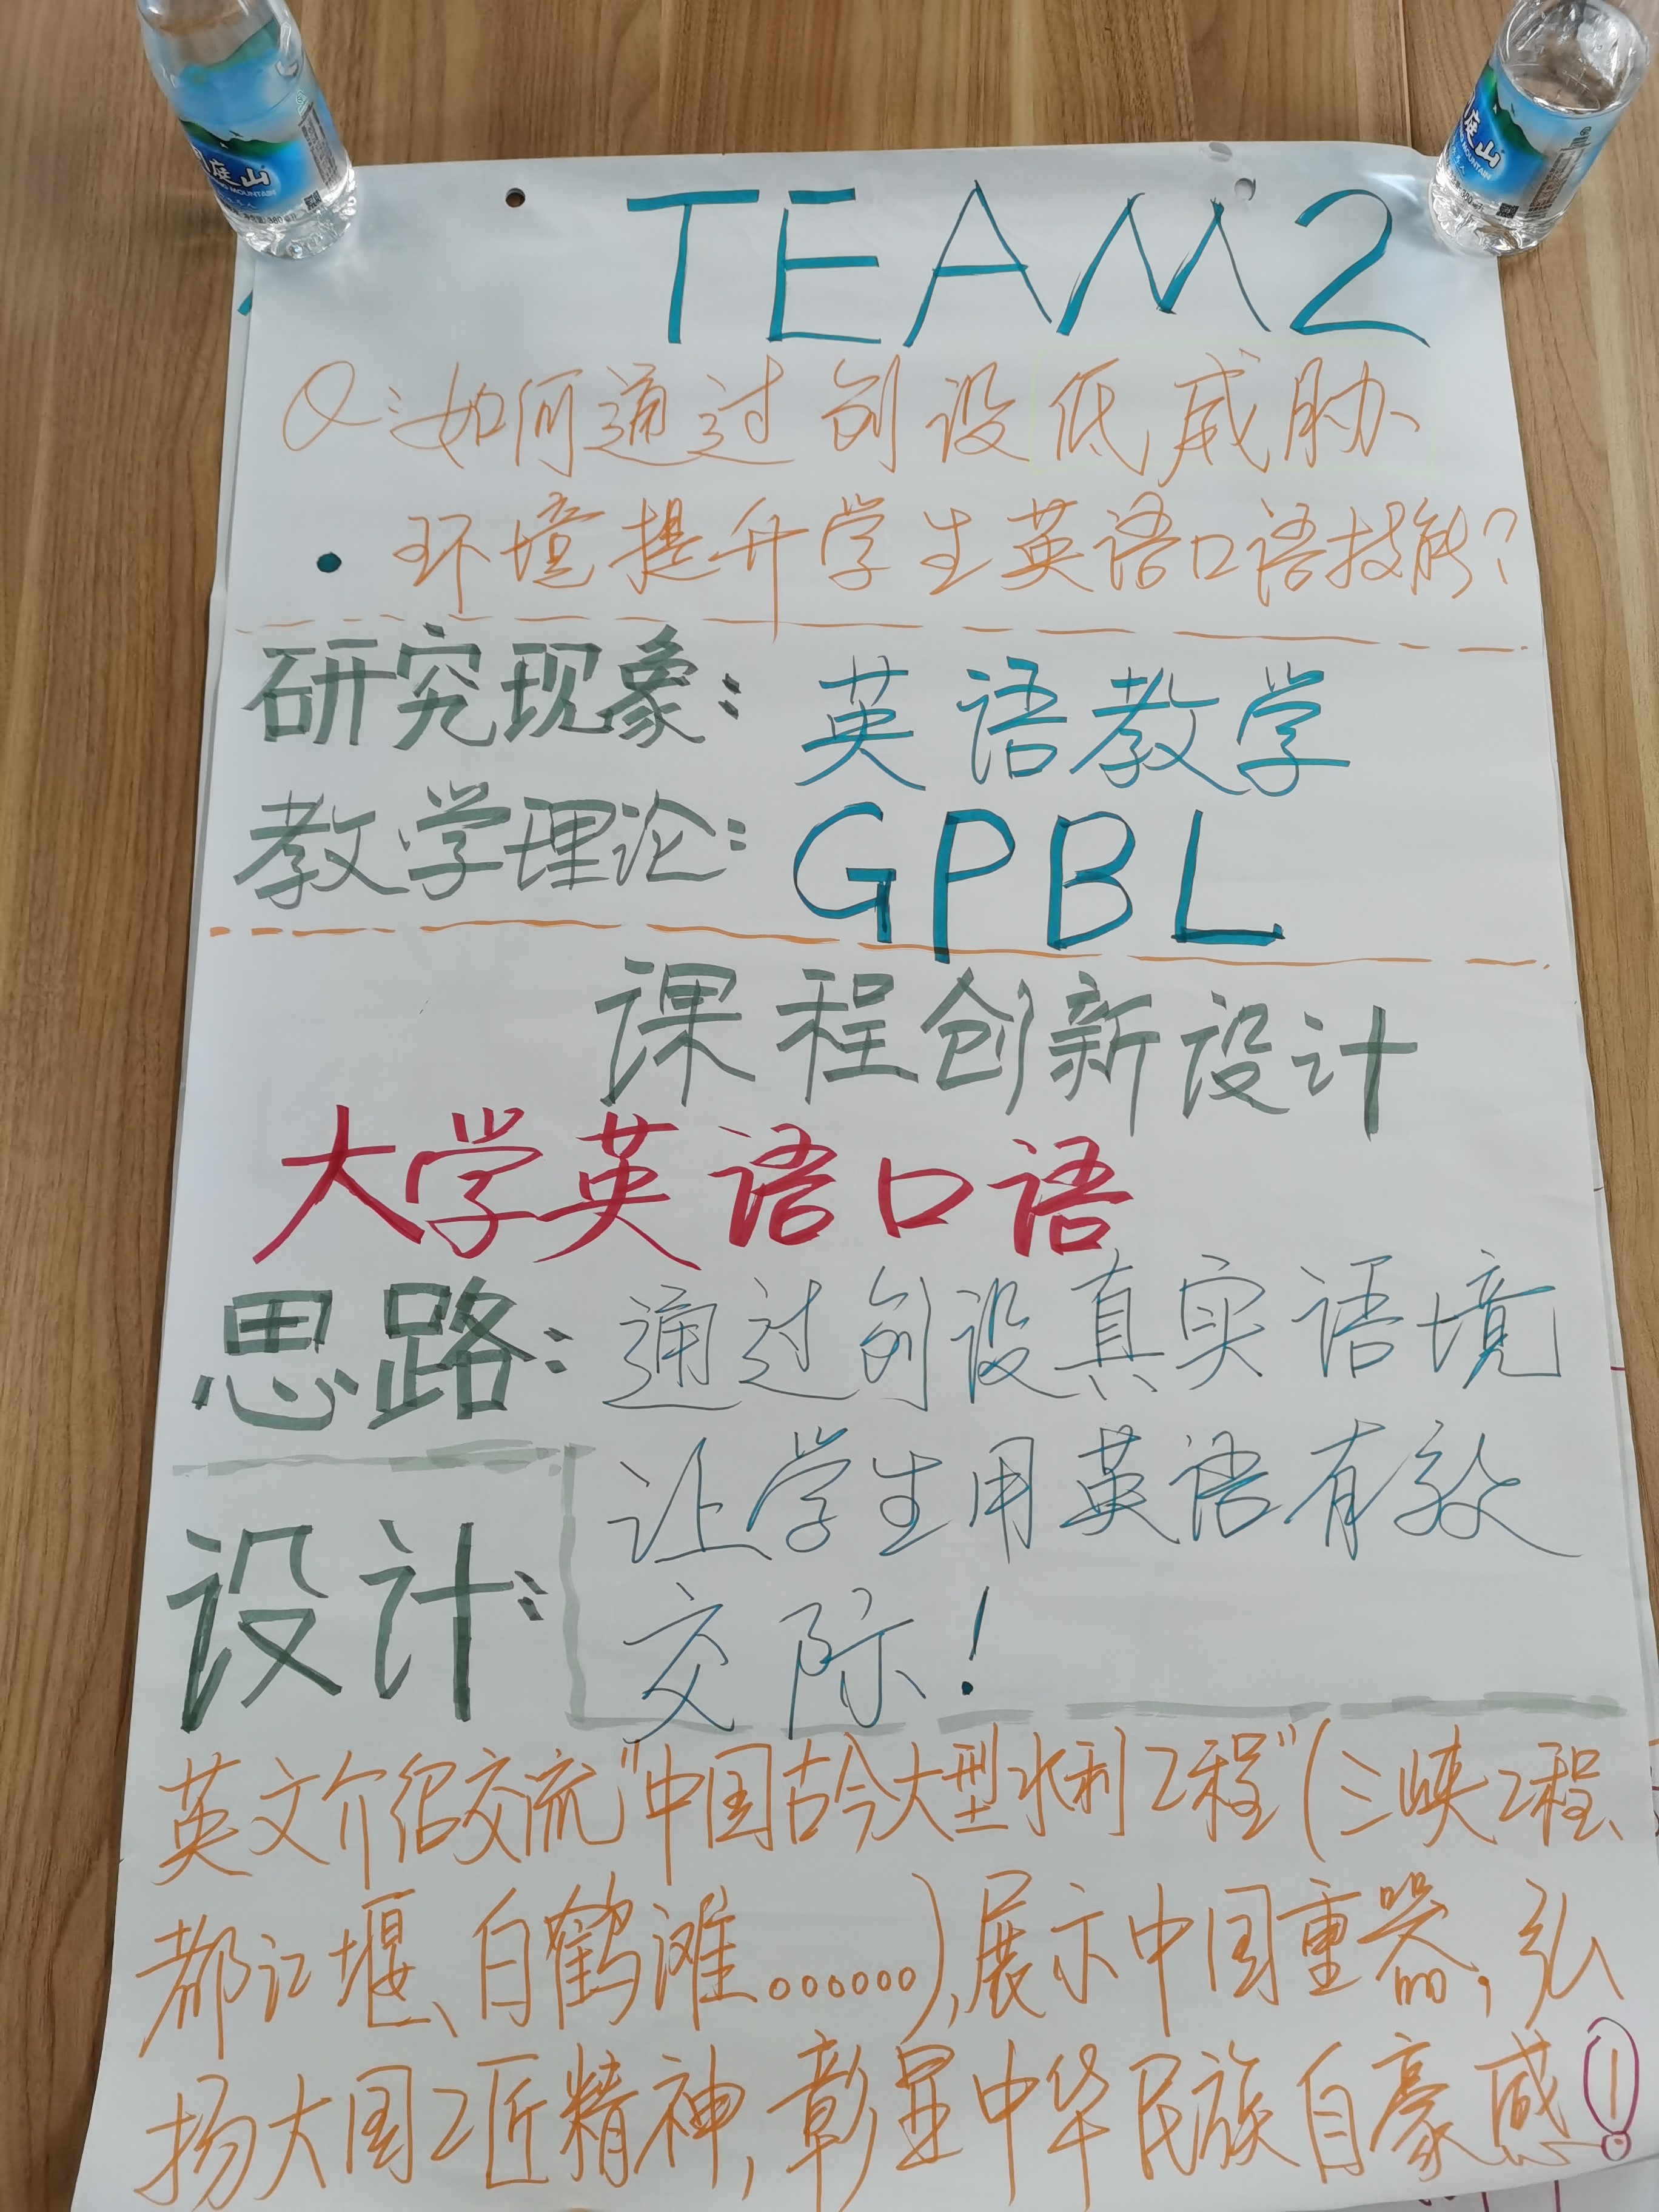 TEAM 2
Q:如何通过创设低威胁
环境提升学生英语口语技能?
研究现象: 英语教学
教学理论: GPBL
课程创新设计
大学英语口语
思路: 通过创设真实语境
让学生用英语有效
设计:
交际!
英文介绍交流"中国古今大型水利工程"(三峡工程、
都江堰、白鹤滩。。。。。。),展示中国重器,弘
扬大国工匠精神,彰显中华民族自豪感!
庭山
MOUNTAIN
庭山
MOUNTAIN